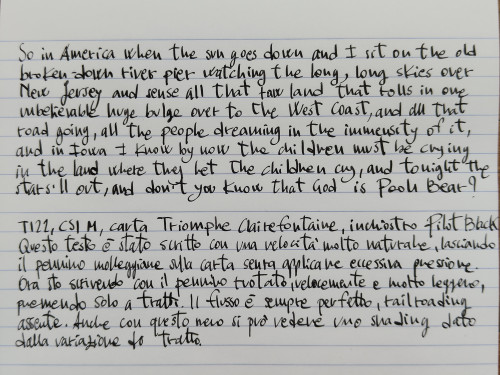 So in America when the sun goes down and I sit on the old
broken-down river pier watching the long, long skies over
New Jersey and sense all that raw land that rolls in one
unbelievable huge bulge over to the West Coast, and all that
road going, all the people dreaming in the immensity of it,
and in Iowa I know by now the children must be crying
in the land where they let the children cry, and tonight the
stars'll out, and don't you know that God is Pooh Bear?
T122, CSI M, carta Triomphe Clairefontaine, inchiostro Pilot Black
Questo testo è stato scritto con una velocità molto naturale, lasciando
il pennino molleggiare sulla carta senza applicare eccessiva pressione.
Ora sto scrivendo con il pennino ruotato, velocemente e molto leggero,
premendo solo a tratti. Il flusso è sempre perfetto, railroading
assente. Anche con questo nero si può vedere uno shading dato
dalla variazione do tratto.